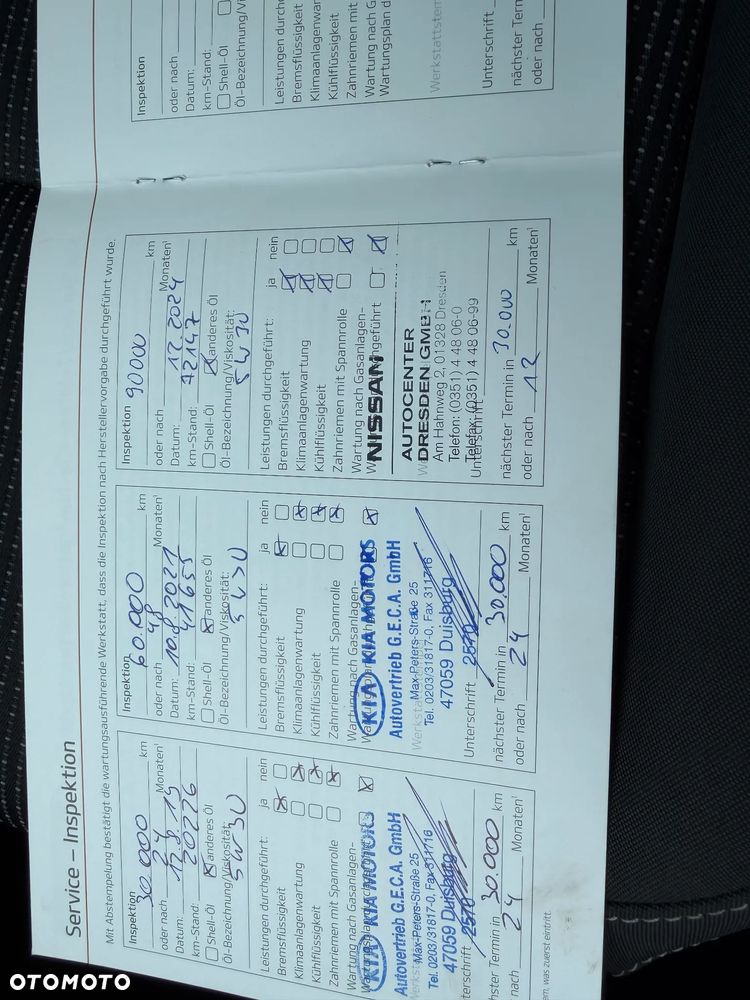 Service – Inspektion
Mit Abstempelung bestätigt die wartungsausführende Werkstatt, dass die Inspektion nach Herstellervorgabe durchgeführt wurde.
Inspektion 30.000 km
oder nach 24 Monaten¹
Datum: 12.9.19
km-Stand: 20226
Shell-Öl anderes Öl
Öl-Bezeichnung/Viskosität:
5W30
Leistungen durchgeführt: ja nein
Bremsflüssigkeit
Klimaanlagenwartung
Kühlflüssigkeit
Zahnriemen mit Spannrolle
Wartung nach Gasanlagen-
KIA KIA MOTORS
Autovertrieb G.E.C.A. GmbH
Max-Peters-Straße 25
Tel. 0203/31817-0, Fax 311716
47059 Duisburg
2570
nächster Termin in 30.000 km
oder nach 24 Monaten¹
Inspektion 60.000 km
oder nach 48 Monaten¹
Datum: 10.9.2021
km-Stand: 41655
Shell-Öl anderes Öl
Öl-Bezeichnung/Viskosität:
5W30
Leistungen durchgeführt: ja nein
Bremsflüssigkeit
Klimaanlagenwartung
Kühlflüssigkeit
Zahnriemen mit Spannrolle
Wartung nach Gasanlagen-
KIA KIA MOTORS
Autovertrieb G.E.C.A. GmbH
Max-Peters-Straße 25
Tel. 0203/31817-0, Fax 311716
47059 Duisburg
Unterschrift 2570
nächster Termin in 30.000 km
oder nach 24 Monaten¹
Inspektion 90000 km
oder nach Monaten¹
Datum: 12.2024
km-Stand: 72147
Shell-Öl anderes Öl
Öl-Bezeichnung/Viskosität:
5W30
Leistungen durchgeführt: ja nein
Bremsflüssigkeit
Klimaanlagenwartung
Kühlflüssigkeit
Zahnriemen mit Spannrolle
Wartung nach Gasanlagen-
NISSAN
AUTOCENTER
DRESDEN GMBH
Am Hahnweg 2, 01328 Dresden
Telefon: (0351) 4 48 06-0
Telefax: (0351) 4 48 06-99
Unterschrift
nächster Termin in 30.000 km
oder nach 12 Monaten¹
Inspektion
oder nach
Datum:
km-Stand:
Shell-Öl
Öl-Bezeichnung/Vi
Leistungen durc
Bremsflüssigkeit
Klimaanlagenwar
Kühlflüssigkeit
Zahnriemen mit
Wartung nach G
Wartungsplan d
Werkstattstem
Unterschrift
nächster Term
oder nach
en, was zuerst eintritt.
OTOMOTO